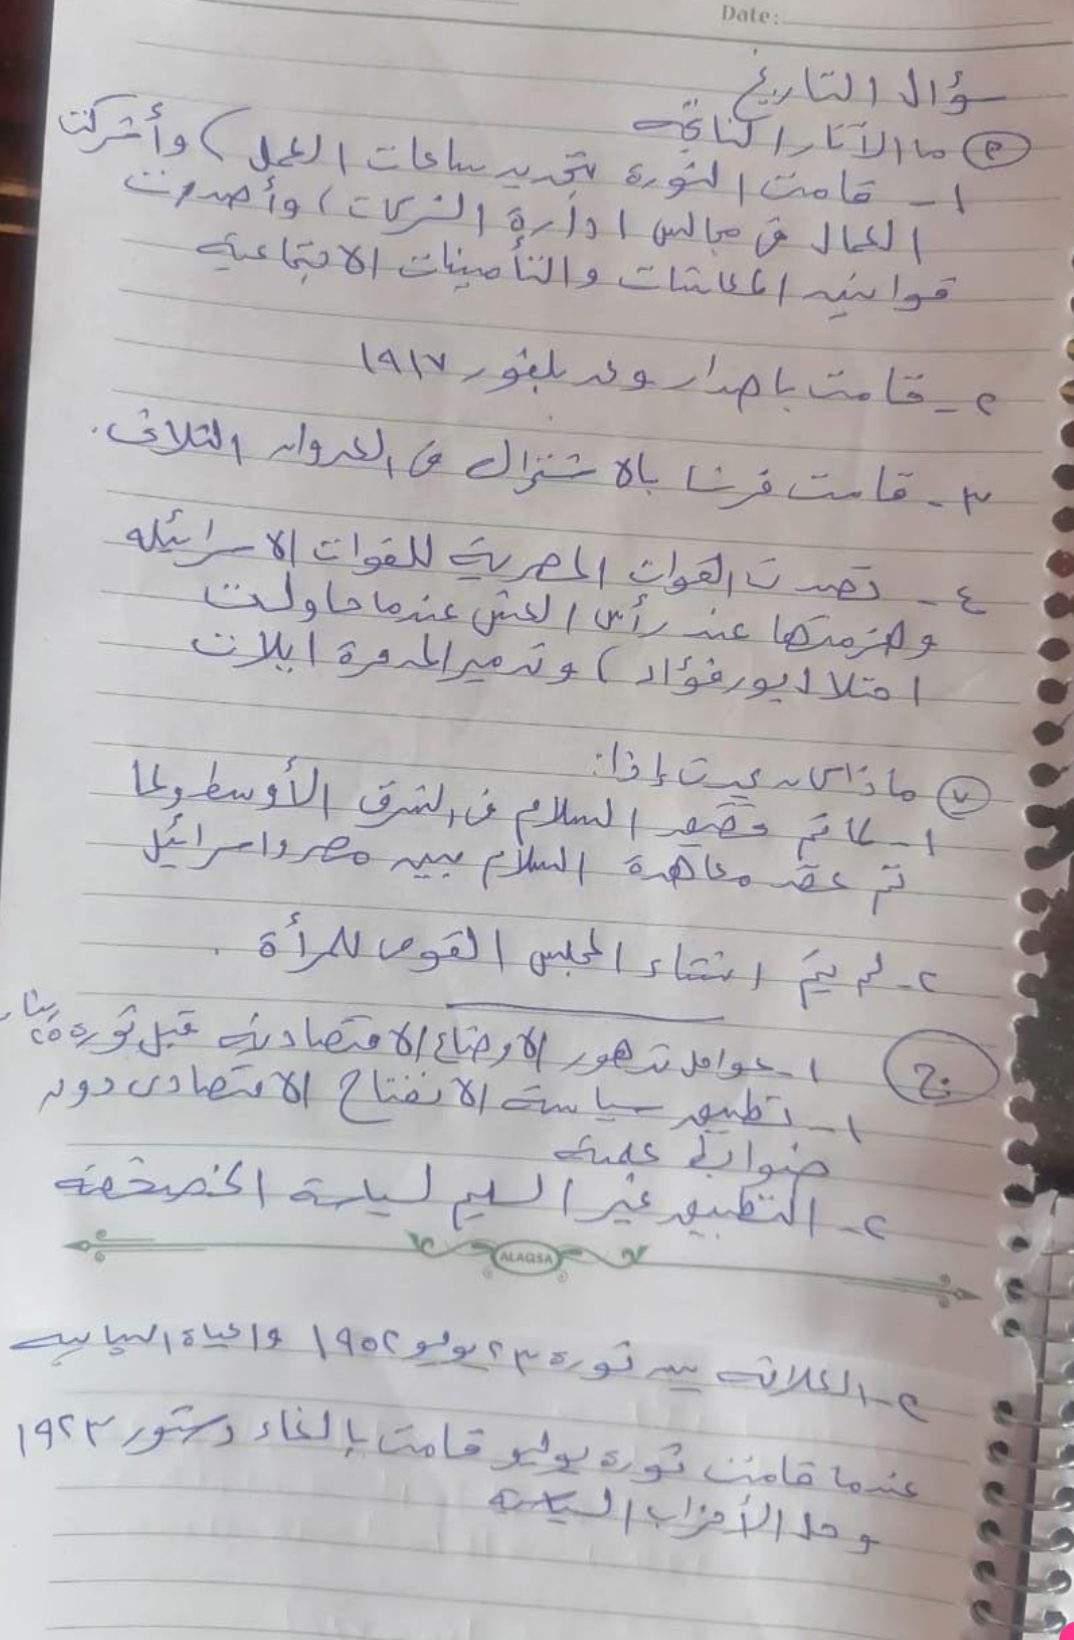 Date:
سؤال التاريخ
(٩) ما الآثار الناتجة
١- قامت الثورة بتحديد ساعات العمل) وأشركت
العمال فى مجالس ادارة الشركات) وأصدرت
قوانين المعاشات والتأمينات الاجتماعية
٢- قامت باصدار وعد بلفور ١٩١٧
٣- قامت فرنسا بالاشتراك فى العدوان الثلاثى.
٤- تصدت القوات المصرية للقوات الاسرائيله
وهزمتها عند رأس العش عندما حاولت
احتلال بورفؤاد) وتدمير المدمرة ايلات
(٧) ماذا كان يحدث إذا:
١- لما تم تحقيق السلام فى الشرق الأوسط ولما
تم عقد معاهدة السلام بين مصر واسرائيل
٢- لم يتم انشاء المجلس القومى للمرأة.
(ج) ١- عوامل تدهور الاوضاع الاقتصادية قبل ثورة ٢٥ يناير
١- تطبيق سياسة الانفتاح الاقتصادى دون
ضوابط علمية
٢- التطبيق غير السليم لسياسة الخصخصة
ALAQSA
٢- العلاقة بين ثورة ٢٣ يوليو ١٩٥٢ والحياة السياسية
عندما قامت ثورة يوليو قامت بإلغاء دستور ١٩٢٣
وحل الأحزاب السياسية